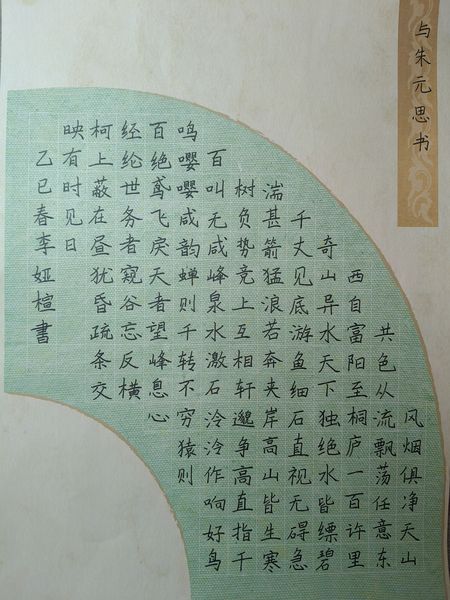 与朱元思书
风烟俱净天山
共色从流飘荡任意东
西自富阳至桐庐一百许里
奇山异水天下独绝水皆缥碧
千丈见底游鱼细石直视无碍急
湍甚箭猛浪若奔夹岸高山皆生寒
树负势竞上互相轩邈争高直指千
百叫无咸峰泉水激石泠泠作响好鸟
鸣嘤嘤咸韵蝉则千转不穷猿则
百绝鸢飞戾天者望峰息心
经纶世务者窥谷忘反横
柯上蔽在昼犹昏疏条交
映有时见日
乙巳春李娅楦書